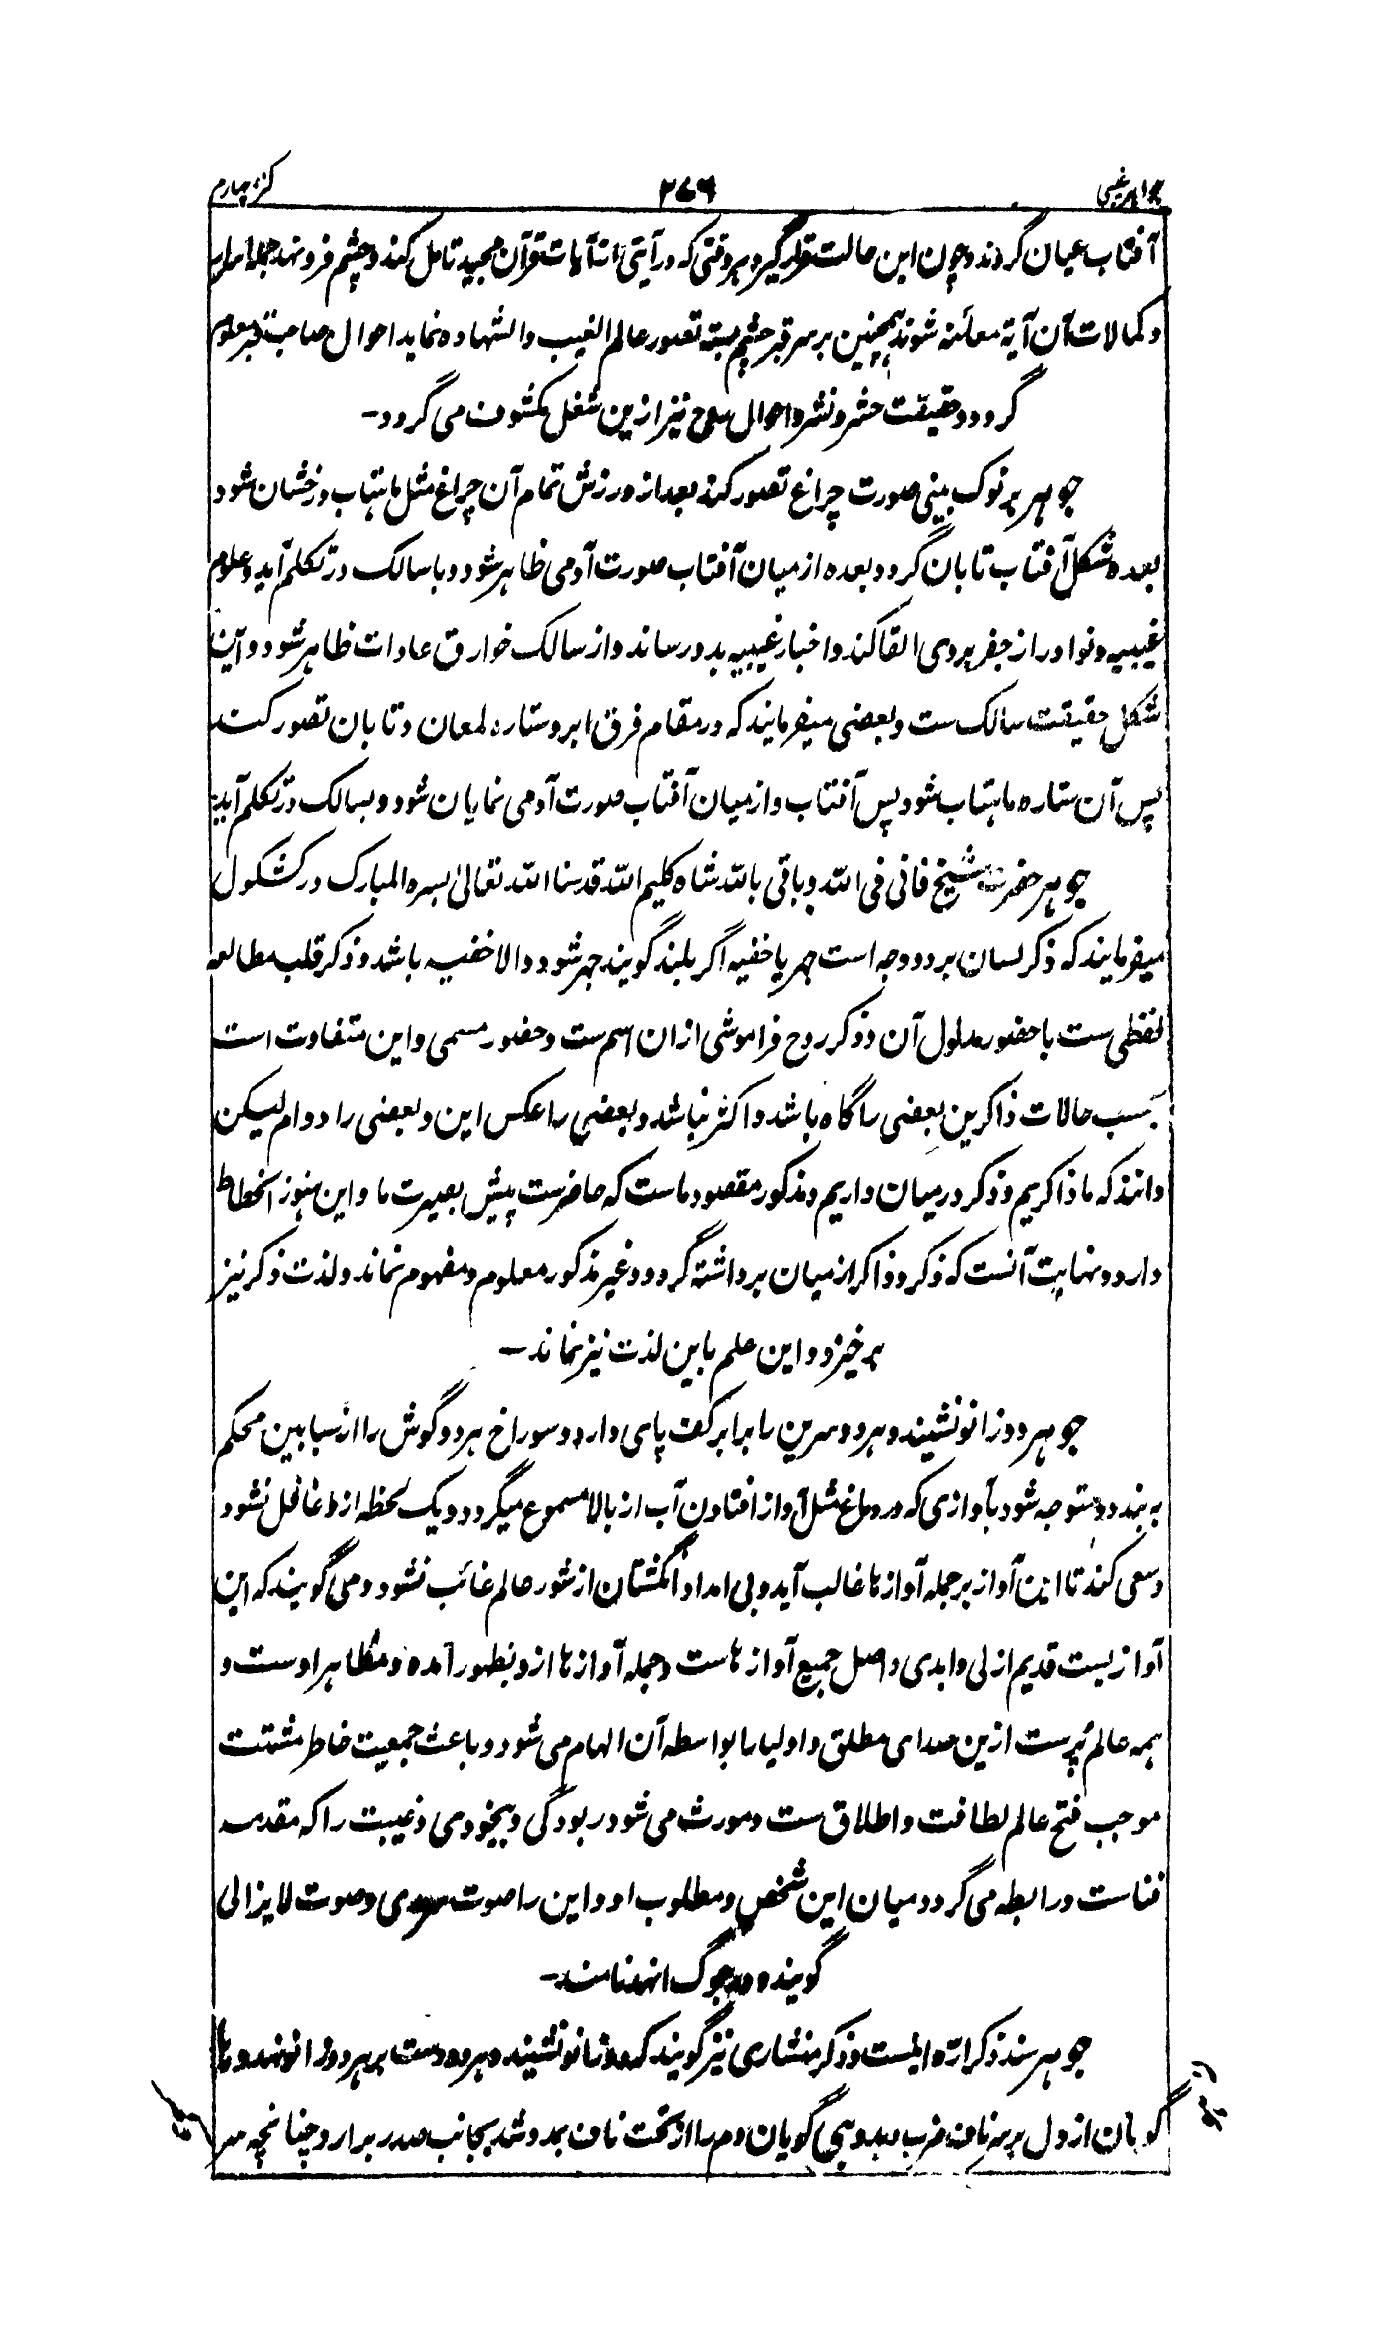 جواہر غیبی ۲۷۶ کنز چہارم
آفتاب عیان گردند و چون این حالت قرار گیرد ہر وقتی کہ در آیتی از آیات قرآن مجید تامل کند و چشم فرو نہد جملہ اسرار
و کمالات آن آیۃ معائنہ شوند ہمچنین بر سر قبر چشم بستہ تصور عالم الغیب والشہادہ نماید احوال صاحب قبر معلوم
گردد و حقیقت حشر و نشر و احوال نیز ازین شغل مکشوف می گردد۔
جوہر بر نوک بینی صورت چراغ تصور کند بعد از ورزش تمام آن چراغ مثل ماہتاب درخشان شود
بعدہ شکل آفتاب تابان گردد بعدہ از میان آفتاب صورت آدمی ظاہر شود و با سالک در تکلم آید و علوم
غیبیہ و نوادر از جفر بروی القا کند و اخبار غیبیہ بدو رساند و از سالک خوارق عادات ظاہر شود و آین
شکل حقیقت سالک ست و بعضی میفرمایند کہ در مقام فرق ابرو ستارہ لمعان و تابان تصور کند
پس آن ستارہ ماہتاب شود پس آفتاب و از میان آفتاب صورت آدمی نمایان شود و بسالک در تکلم آید
جوہر حضرت شیخ فانی فی اللہ و باقی باللہ شاہ کلیم اللہ قدسنا اللہ تعالیٰ بسرہ المبارک در کشکول
میفرمایند کہ ذکر لسان بر دو وجہ است جہر یا خفیہ اگر بلند گویند جہر شود والا خفیہ باشد و ذکر قلب مطالعہ
لفظی ست با حضور مدلول آن و ذکر روح فراموشی ازان اسم ست و حضور مسمی و این متفاوت است
بحسب حالات ذاکرین بعضی را گاہ باشد و اکثر نباشد و بعضی را عکس این و بعضی را دوام لیکن
دانند کہ ما ذاکریم و ذکر درمیان داریم و مذکور مقصود ماست کہ حاضرست پیش بصیرت ما و این ہنوز انحطاط
دارد و نہایت آنست کہ ذکر و ذاکر از میان برداشتہ گردد و غیر مذکور معلوم و مفہوم نماند و لذت ذکر نیز
برخیزد و این علم باین لذت نیز نماند۔
جوہر دو زانو نشیند و ہر دو سرین را برابر کف پای دارد و سوراخ ہر دو گوش را از سبابین محکم
بہ بندد و متوجہ شود بآوازی کہ در دماغ مثل آواز افتادن آب از بالا مسموع میگردد و یک لحظہ ازو غافل نشود
و سعی کند تا این آواز بر جملہ آوازہا غالب آید و بی امداد انگشتان از شور عالم غائب نشود و می گویند کہ این
آوازیست قدیم ازلی و ابدی و اصل جمیع آوازہاست و جملہ آوازہا ازو بظہور آمدہ و مظاہر اوست و
ہمہ عالم پُرست ازین صدای مطلق و اولیا را بواسطہ آن الہام می شود و باعث جمعیت خاطر مشتت
موجب فتح عالم لطافت و اطلاق ست و مورث می شود ربودگی و بیخودی و غیبت را کہ مقدمہ
فناست و رابطہ می گردد میان این شخص و مطلوب او و این را صوت سرمدی و صوت لایزالی
گویند و در جوگ انہد نامند۔
جوہر سند ذکر ارّہ اینست و ذکر منشاری نیز گویند کہ دو زانو نشیند و ہر دو دست بر ہر دو زانو نہد و ہا
گویان از دل بر سر ناف ضرب و ہی گویان دم را از تحت ناف بمد و شد بجانب صدر برآرد چنانچہ سر